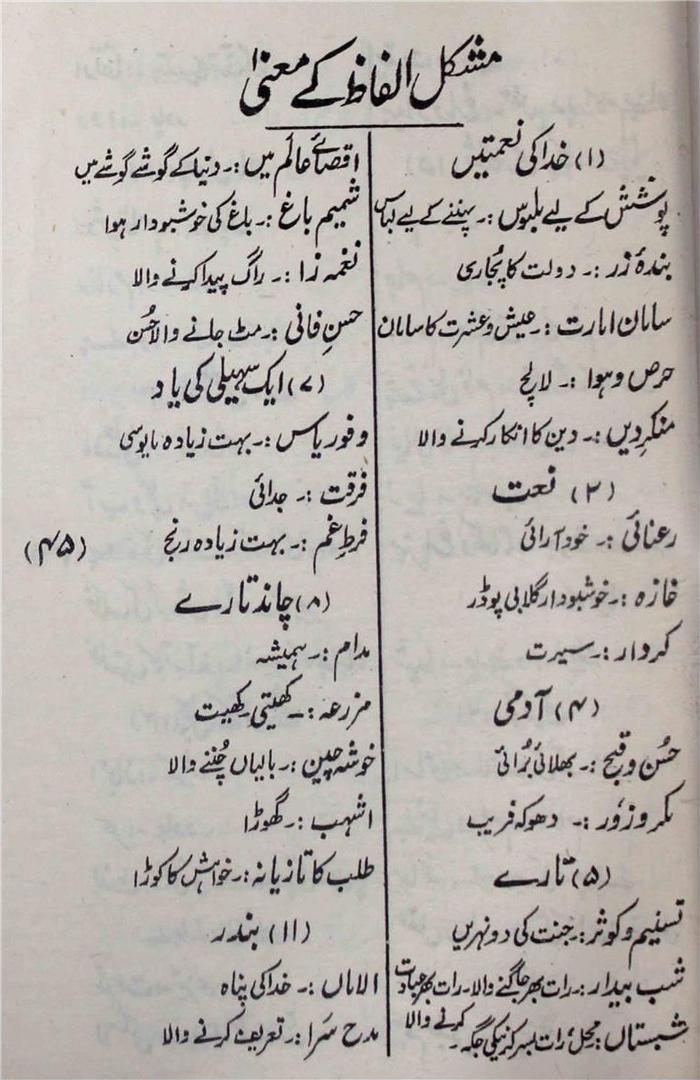 مشکل الفاظ کے معنی
(۱) خدا کی نعمتیں
پوشش کے لیے ملبوس :۔ پہننے کے لیے لباس
بندۂ زر :۔ دولت کا پُجاری
سامان امارت :۔ عیش و عشرت کا سامان
حرص و ہوا :۔ لالچ
منکرِ دیں :۔ دین کا انکار کرنے والا
(۲) نعت
رعنائی :۔ خود آرائی
غازہ :۔ خوشبودار گلابی پوڈر
کردار :۔ سیرت
(۴) آدمی
حُسن و قبح :۔ بھلائی بُرائی
مکر و زُور :۔ دھوکہ فریب
(۵) تارے
تسنیم و کوثر :۔ جنت کی دو نہریں
شب بیدار :۔ رات بھر جاگنے والا ۔ رات بھر عبادت کرنے والا
شبستاں :۔ محل، رات بسر کرنیکی جگہ ۔
اقصائے عالم میں :۔ دنیا کے گوشے گوشے میں
شمیم باغ :۔ باغ کی خوشبودار ہوا
نغمہ زا :۔ راگ پیدا کرنے والا
حسنِ فانی :۔ مٹ جانے والا حُسن
(۷) ایک سہیلی کی یاد
وفور یاس :۔ بہت زیادہ مایوسی
فرقت :۔ جدائی
فرطِ غم :۔ بہت زیادہ رنج (۴۵)
(۸) چاند تارے
مدام :۔ ہمیشہ
مزرعہ :۔ کھیتی ۔ کھیت
خوشہ چین :۔ بالیاں چُننے والا
اشہب :۔ گھوڑا
طلب کا تازیانہ :۔ خواہش کا کوڑا
(۱۱) بندر
الاماں :۔ خدا کی پناہ
مدح سَرا :۔ تعریف کرنے والا